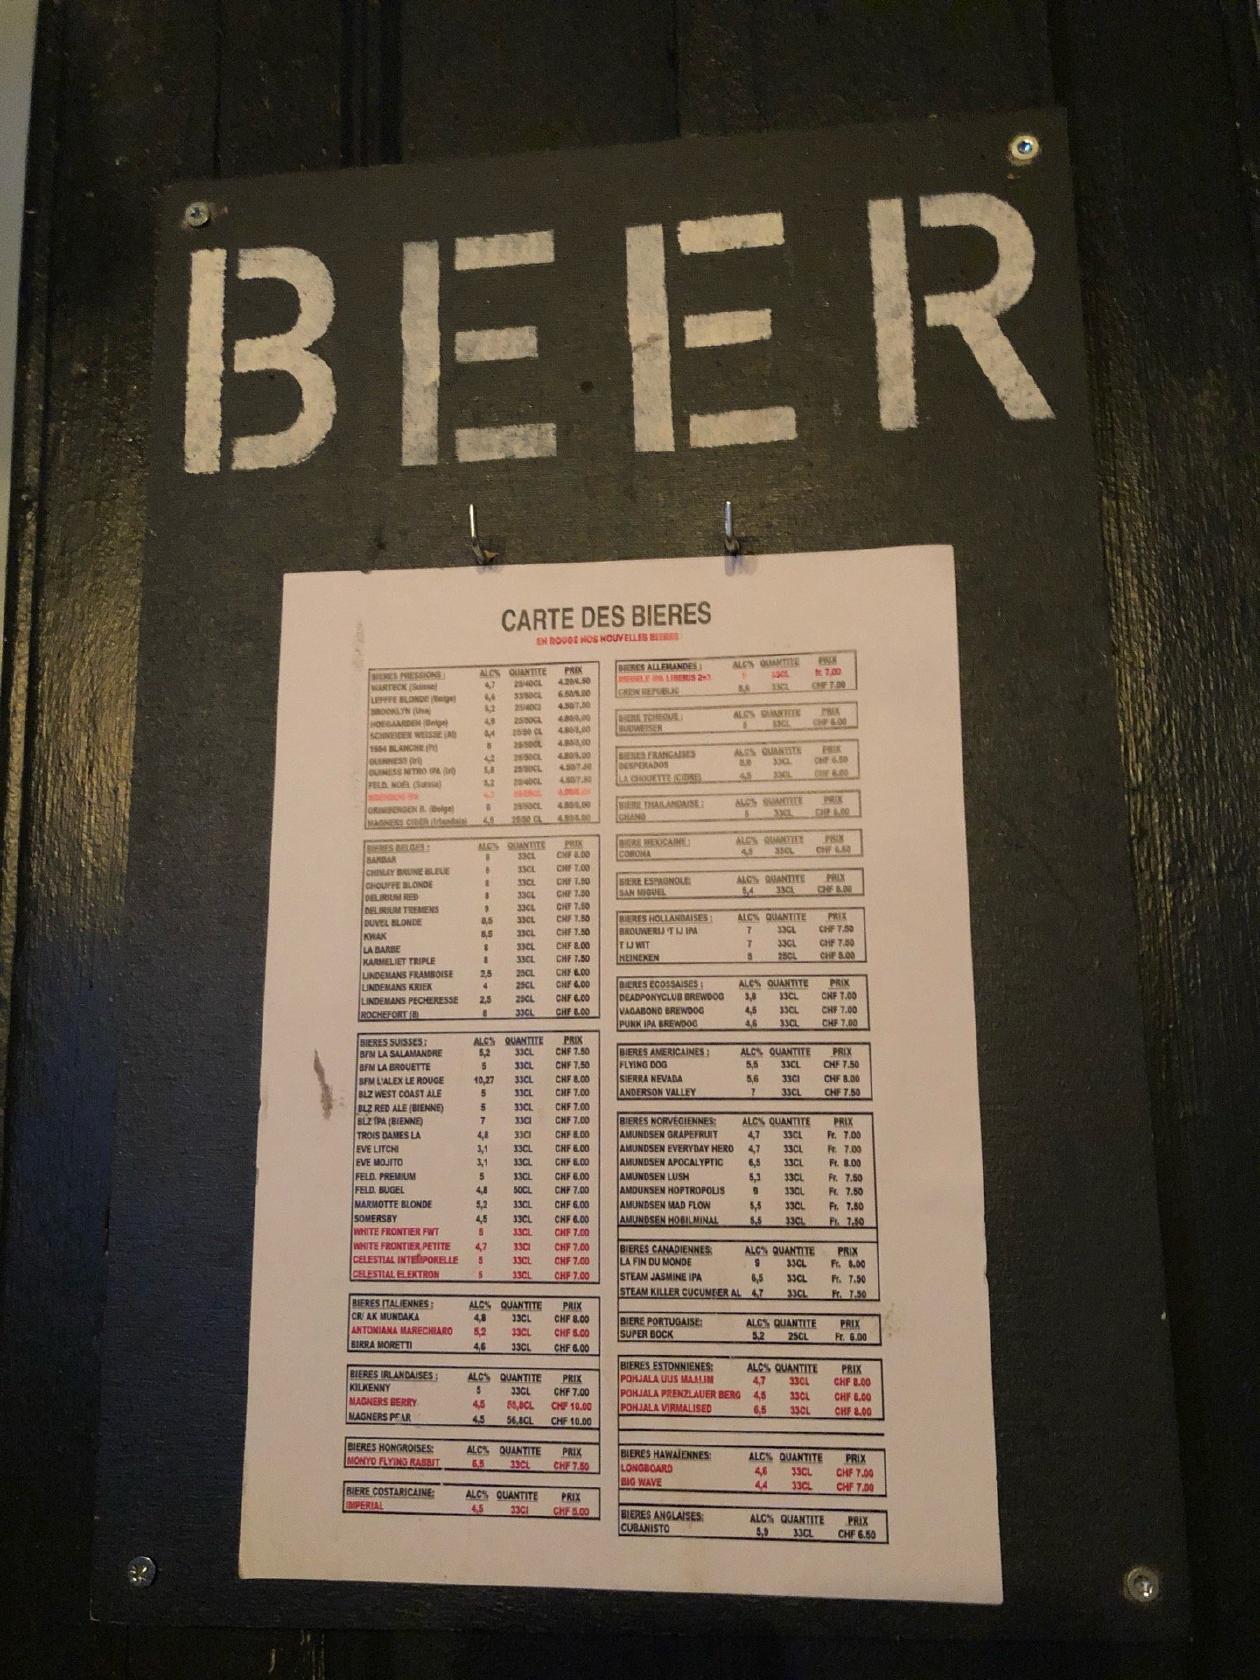 BEER
CARTE DES BIERES
EN ROUGE NOS NOUVELLES BIERES
BIERES PRESSIONS : ALC% QUANTITE PRIX
WARTECK (Suisse) 4,7 25/40CL
LEFFFE BLONDE (Belge) 6,6
BROOKLYN (Usa) 5,2
HOEGAARDEN (Belge) 4,9 25/50CL
SCHNEIDER WEISSE (Al) 5,4 25/50 CL
1664 BLANCHE (Fr) 5 25/50CL
GUINNESS (Irl) 4,2 25/50CL
GUINESS NITRO IPA (Irl) 5,8 25/50CL
FELD. NOËL (Suisse) 5,2 25/40CL
GRIMBERGEN B. (Belge) 6 25/50CL
MAGNERS CIDER (Irlandais) 4,5 25/50 CL
BIERES BELGES : ALC% QUANTITE PRIX
BARBAR 8 33CL CHF 8.00
CHIMAY BRUNE BLEUE 33CL CHF 7.00
CHOUFFE BLONDE 8 33CL CHF 7.50
DELIRIUM RED 8 33CL CHF 7.50
DELIRIUM TREMENS 33CL CHF 7.50
DUVEL BLONDE 8,5 33CL CHF 7.50
KWAK 8,5 33CL CHF 7.50
LA BARBE 8 33CL CHF 8.00
KARMELIET TRIPLE 8 33CL CHF 7.50
LINDEMANS FRAMBOISE 2,5 25CL CHF 6.00
LINDEMANS KRIEK 4 25CL CHF 6.00
LINDEMANS PECHERESSE 2,5 25CL CHF 6.00
ROCHEFORT (8) 8 33CL CHF 8.00
BIERES SUISSES : ALC% QUANTITE PRIX
BFM LA SALAMANDRE 5,2 33CL CHF 7.50
BFM LA BROUETTE 5 33CL CHF 7.50
BFM L'ALEX LE ROUGE 10,27 33CL CHF 8.00
BLZ WEST COAST ALE 5 33CL CHF 7.00
BLZ RED ALE (BIENNE) 5 33CL CHF 7.00
BLZ IPA (BIENNE) 7 33Cl CHF 7.00
TROIS DAMES LA 4,8 33Cl CHF 8.00
EVE LITCHI 3,1 33CL CHF 6.00
EVE MOJITO 3,1 33CL CHF 6.00
FELD. PREMIUM 5 33CL CHF 6.00
FELD. BUGEL 4,8 50CL CHF 7.00
MARMOTTE BLONDE 5,2 33CL CHF 6.00
SOMERSBY 4,5 33CL CHF 6.00
WHITE FRONTIER FWT 5 33CL CHF 7.00
WHITE FRONTIER PETITE 4,7 33Cl CHF 7.00
CELESTIAL INTEMPORELLE 5 33CL CHF 7.00
CELESTIAL ELEKTRON 5 33CL CHF 7.00
BIERES ITALIENNES : ALC% QUANTITE PRIX
CR/ AK MUNDAKA 4,8 33CL CHF 8.00
ANTONIANA MARECHIARO 5,2 33CL CHF 8.00
BIRRA MORETTI 4,6 33CL CHF 6.00
BIERES IRLANDAISES : ALC% QUANTITE PRIX
KILKENNY 5 33CL CHF 7.00
MAGNERS BERRY 4,5 56,8CL CHF 10.00
MAGNERS PEAR 4,5 56,8CL CHF 10.00
BIERES HONGROISES: ALC% QUANTITE PRIX
MONYO FLYING RABBIT 6,5 33CL CHF 7.50
BIERE COSTARICAINE: ALC% QUANTITE PRIX
IMPERIAL 4,5 33Cl CHF 5.00
BIERES ALLEMANDES : ALC% QUANTITE PRIX
LIBERIS 2+3 33CL fr. 7.00
CREW REPUBLIC 5,6 33CL CHF 7.00
BIERE TCHEQUE : ALC% QUANTITE PRIX
BUDWEISER 5 33CL CHF 6.00
BIERES FRANCAISES ALC% QUANTITE PRIX
DESPERADOS 5,9 33CL CHF 6.50
LA CHOUETTE (CIDRE) 4,5 33CL CHF 8.00
BIERE THAILANDAISE : ALC% QUANTITE PRIX
CHANG 5 33CL CHF 6.00
BIERE MEXICAINE : ALC% QUANTITE PRIX
CORONA 4,5 33CL CHF 6.50
BIERE ESPAGNOLE: ALC% QUANTITE PRIX
SAN MIGUEL 5,4 33CL CHF 6.00
BIERES HOLLANDAISES : ALC% QUANTITE PRIX
BROUWERIJ 'T IJ IPA 7 33CL CHF 7.50
T IJ WIT 7 33CL CHF 7.50
HEINEKEN 5 25CL CHF 5.00
BIERES ECOSSAISES : ALC% QUANTITE PRIX
DEADPONYCLUB BREWDOG 3,8 33CL CHF 7.00
VAGABOND BREWDOG 4,5 33CL CHF 7.00
PUNK IPA BREWDOG 4,6 33CL CHF 7.00
BIERES AMERICAINES : ALC% QUANTITE PRIX
FLYING DOG 5,5 33CL CHF 7.50
SIERRA NEVADA 5,6 33Cl CHF 8.00
ANDERSON VALLEY 7 33CL CHF 7.50
BIERES NORVEGIENNES: ALC% QUANTITE PRIX
AMUNDSEN GRAPEFRUIT 4,7 33CL Fr. 7.00
AMUNDSEN EVERYDAY HERO 4,7 33CL Fr. 7.00
AMUNDSEN APOCALYPTIC 6,5 33CL Fr. 8.00
AMUNDSEN LUSH 5,3 33CL Fr. 7.50
AMDUNSEN HOPTROPOLIS 9 33CL Fr. 7.50
AMUNDSEN MAD FLOW 5,5 33CL Fr. 7.50
AMUNDSEN HOBILMINAL 5,5 33CL Fr. 7.50
BIERES CANADIENNES: ALC% QUANTITE PRIX
LA FIN DU MONDE 9 33CL Fr. 8.00
STEAM JASMINE IPA 6,5 33CL Fr. 7.50
STEAM KILLER CUCUMBER AL 4,7 33CL Fr. 7.50
BIERE PORTUGAISE: ALC% QUANTITE PRIX
SUPER BOCK 5,2 25CL Fr. 6.00
BIERES ESTONNIENES: ALC% QUANTITE PRIX
POHJALA UUS MAAILM 4,7 33CL CHF 8.00
POHJALA PRENZLAUER BERG 4,5 33CL CHF 8.00
POHJALA VIRMALISED 6,5 33CL CHF 8.00
BIERES HAWAÏENNES: ALC% QUANTITE PRIX
LONGBOARD 4,6 33CL CHF 7.00
BIG WAVE 4,4 33CL CHF 7.00
BIERES ANGLAISES: ALC% QUANTITE PRIX
CUBANISTO 5,9 33CL CHF 6.50